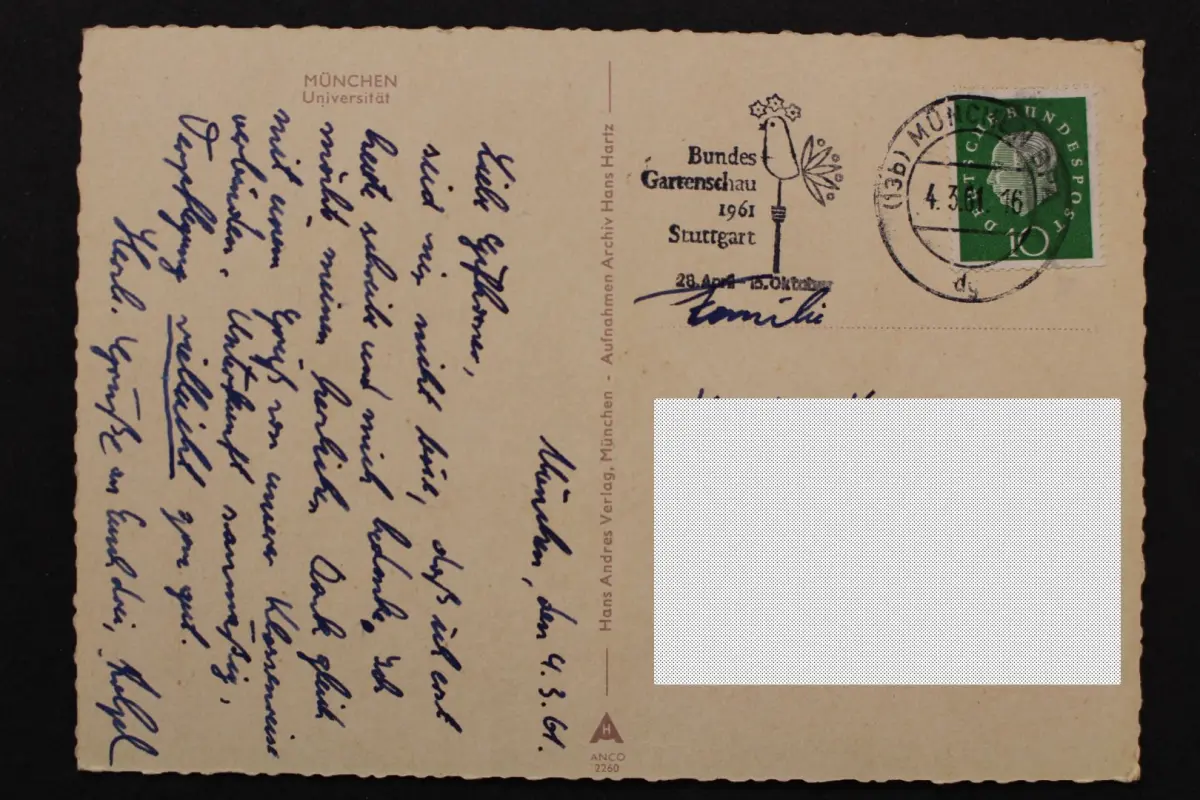 MÜNCHEN
Universität
München, den 4.3.61.
Liebe Gifhorner,
seid mir nicht böse, daß ich erst
heute schreibe und mich bedanke. Ich
möchte meinen herzlichen Dank gleich
mit einem Gruß von unserer Klassenreise
verbinden. Unterkunft saumäßig,
Verpflegung vielleicht gut.
Herzl. Grüße an Euch drei,
Hans Andres Verlag, München - Aufnahmen Archiv Hans Hartz
H
ANCO
2260
Bundes
Gartenschau
1961
Stuttgart
28. April - 15. Oktober
(13b) MÜNCHEN
4.3.61. 16
dg
DEUTSCHE BUNDESPOST
10
Familie